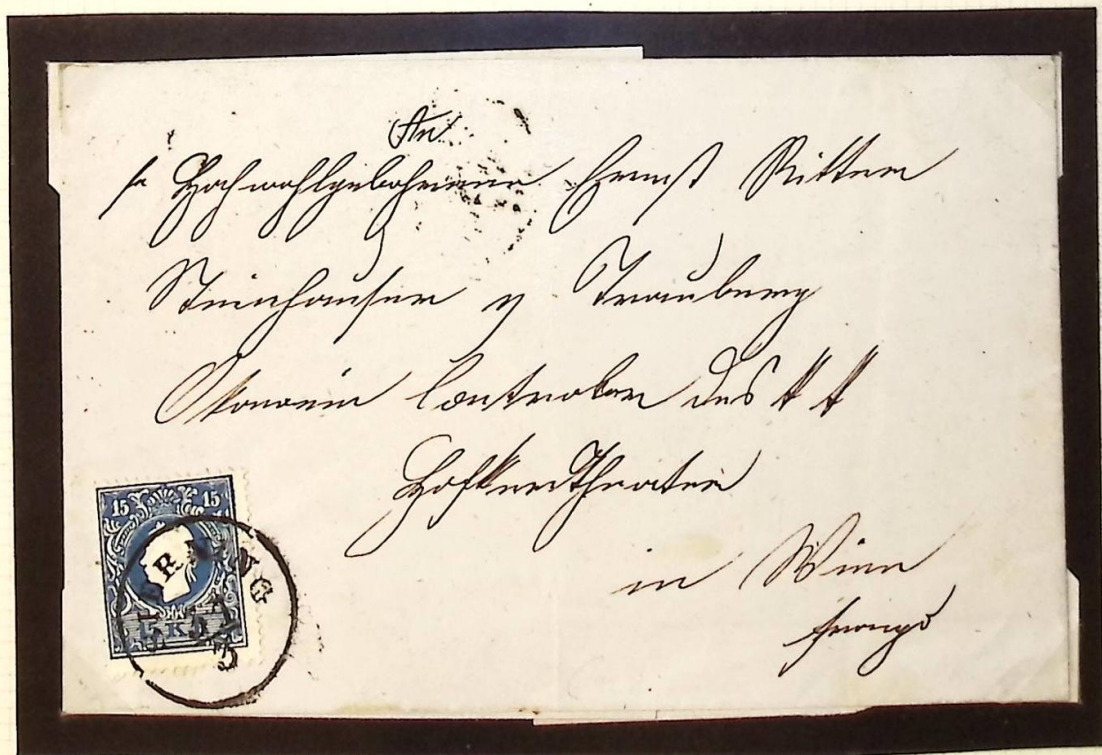 An
Hochwohlgebohrenen Ernst Ritter
Steinhauser v Trauberg
Ökonomie Controlor des k k
Theater
in Wien
franco
15 15
15 K